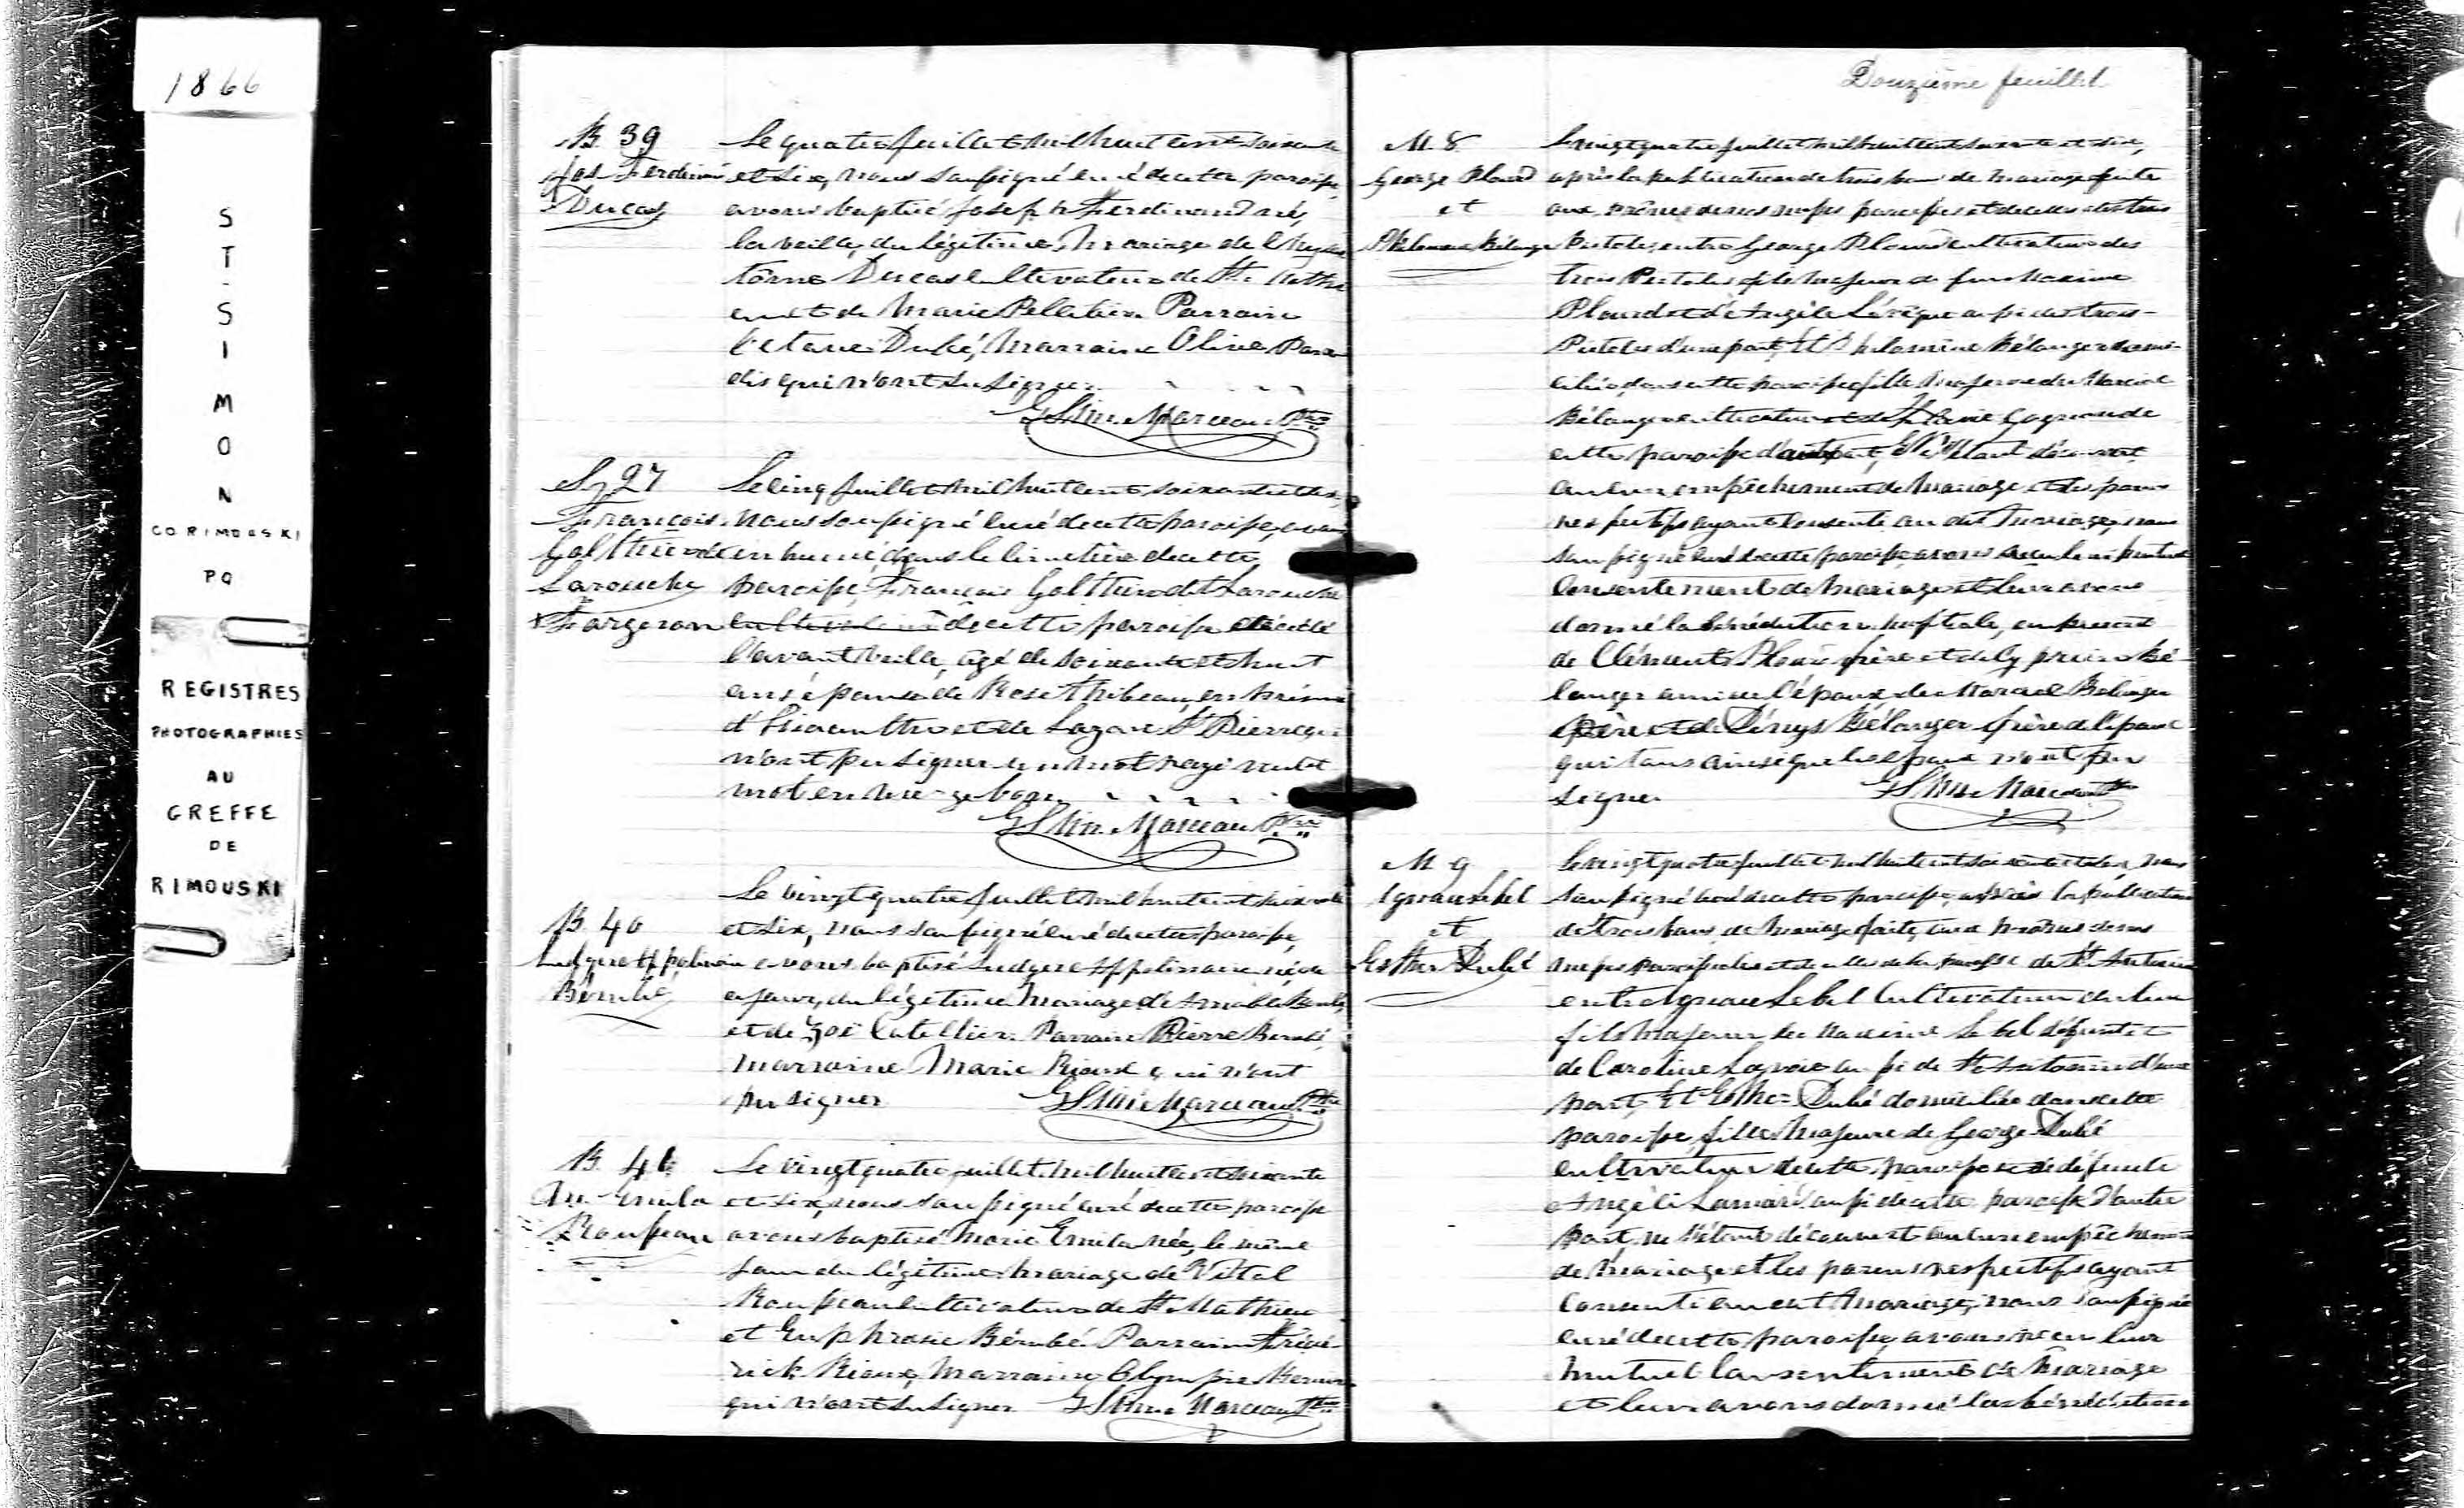 1866
ST-SIMON
CO. RIMOUSKI
PQ
REGISTRES
PHOTOGRAPHIES
AU
GREFFE
DE
RIMOUSKI
B. 39
Jos. Ferdinand
Ducas
Le quatre juillet mil huit cent soixante
et six, nous soussigné curé de cette paroisse,
avons baptisé Joseph Ferdinand né,
la veille, du légitime mariage de
Ducas cultivateur de St. Mathi
eu et de Marie Pelletier. Parrain
Octave Dubé, Marraine Olive Para
dis qui n'ont su signer.
Marceau Ptre
S. 27
François
Galthier dit
Larouche
Forgeron
Le cinq juillet mil huit cent soixante et six,
nous soussigné curé de cette paroisse, avons
inhumé, dans le cimetière de cette
paroisse, François Galthier dit Larouche
cultivateur de cette paroisse décédé
l'avant veille, âgé de soixante et huit
ans époux de Rose Thibeau, en présence
d' et de Lazare St. Pierre qui
n'ont pu signer un mot rayé nul et
mot en marge bon.
Marceau Ptre
B. 40
Ludgere Appolinaire
Bérubé
Le vingt quatre juillet mil huit cent soixante
et six, nous soussigné curé de cette paroisse,
avons baptisé Ludgere Appolinaire né, ce
jour, du légitime mariage d'Amable Bérubé
et de Zoé Catellier. Parrain Pierre Bérubé,
marraine Marie Rioux qui n'ont
pu signer
Marceau Ptre
B. 41
M. Emila
Rousseau
Le vingt quatre juillet mil huit cent soixante
et six, nous soussigné curé de cette paroisse
avons baptisé Marie Emila née, le même
jour du légitime mariage de Vital
Rousseau cultivateur de St. Mathieu
et Euphrosie Bérubé. Parrain Fréde-
rick Rioux, Marraine Olympie
qui n'ont su signer
Marceau Ptre
Douzième feuillet
M. 8
George Plourd
et
Philomène Bélanger
Le vingt quatre juillet mil huit cent soixante et six,
après la publication de trois bans de mariage faite
aux prônes de nos messes paroissiales et de celles des trois
Pistoles, entre George Plourd cultivateur des
trois Pistoles fils majeur de feu Maxime
Plourd et d'Angèle Lévêque aussi des trois-
Pistoles d'une part, Et Philomène Bélanger domi-
ciliée, dans cette paroisse, fille majeure de Marcel
Bélanger cultivateur et de Gagnon de
cette paroisse d'autre part, Ne s'étant découvert
aucun empêchement de mariage et les parens
respectifs ayant consenti au dit mariage, nous
soussigné curé de cette paroisse avons reçu leur mutuel
consentement de mariage et leur avons
donné la bénédiction nuptiale, en présence
de Clément Plourd frère et de Cyprien Bé-
langer ami de l'époux, de Marcel Bélanger
père et de Dénys Bélanger frère de l'épouse
qui tous ainsi que les époux n'ont pu
signer
Marceau Ptre
M. 9
Ignace Lebel
et
Esther Dubé
Le vingt quatre juillet mil huit cent soixante et six, nous
soussigné curé de cette paroisse, après la publication
de trois bans de mariage faite, aux prônes de nos
messes paroissiales et de celles de la paroisse de St. Antonin
entre Ignace Lebel Cultivateur du lieu
fils majeur de Lebel défunt et
de Caroline Lavoie aussi de St. Antonin d'une
part, Et Esther Dubé domiciliée dans cette
paroisse, fille majeure de George Dubé
cultivateur de cette paroisse et de défunte
Angèle aussi de cette paroisse d'autre
part, ne s'étant découvert aucun empêchement
de mariage et les parens respectifs ayant
consenti au dit mariage, nous soussigné
curé de cette paroisse, avons reçu leur
mutuel consentement de mariage
et leur avons donné la bénédiction